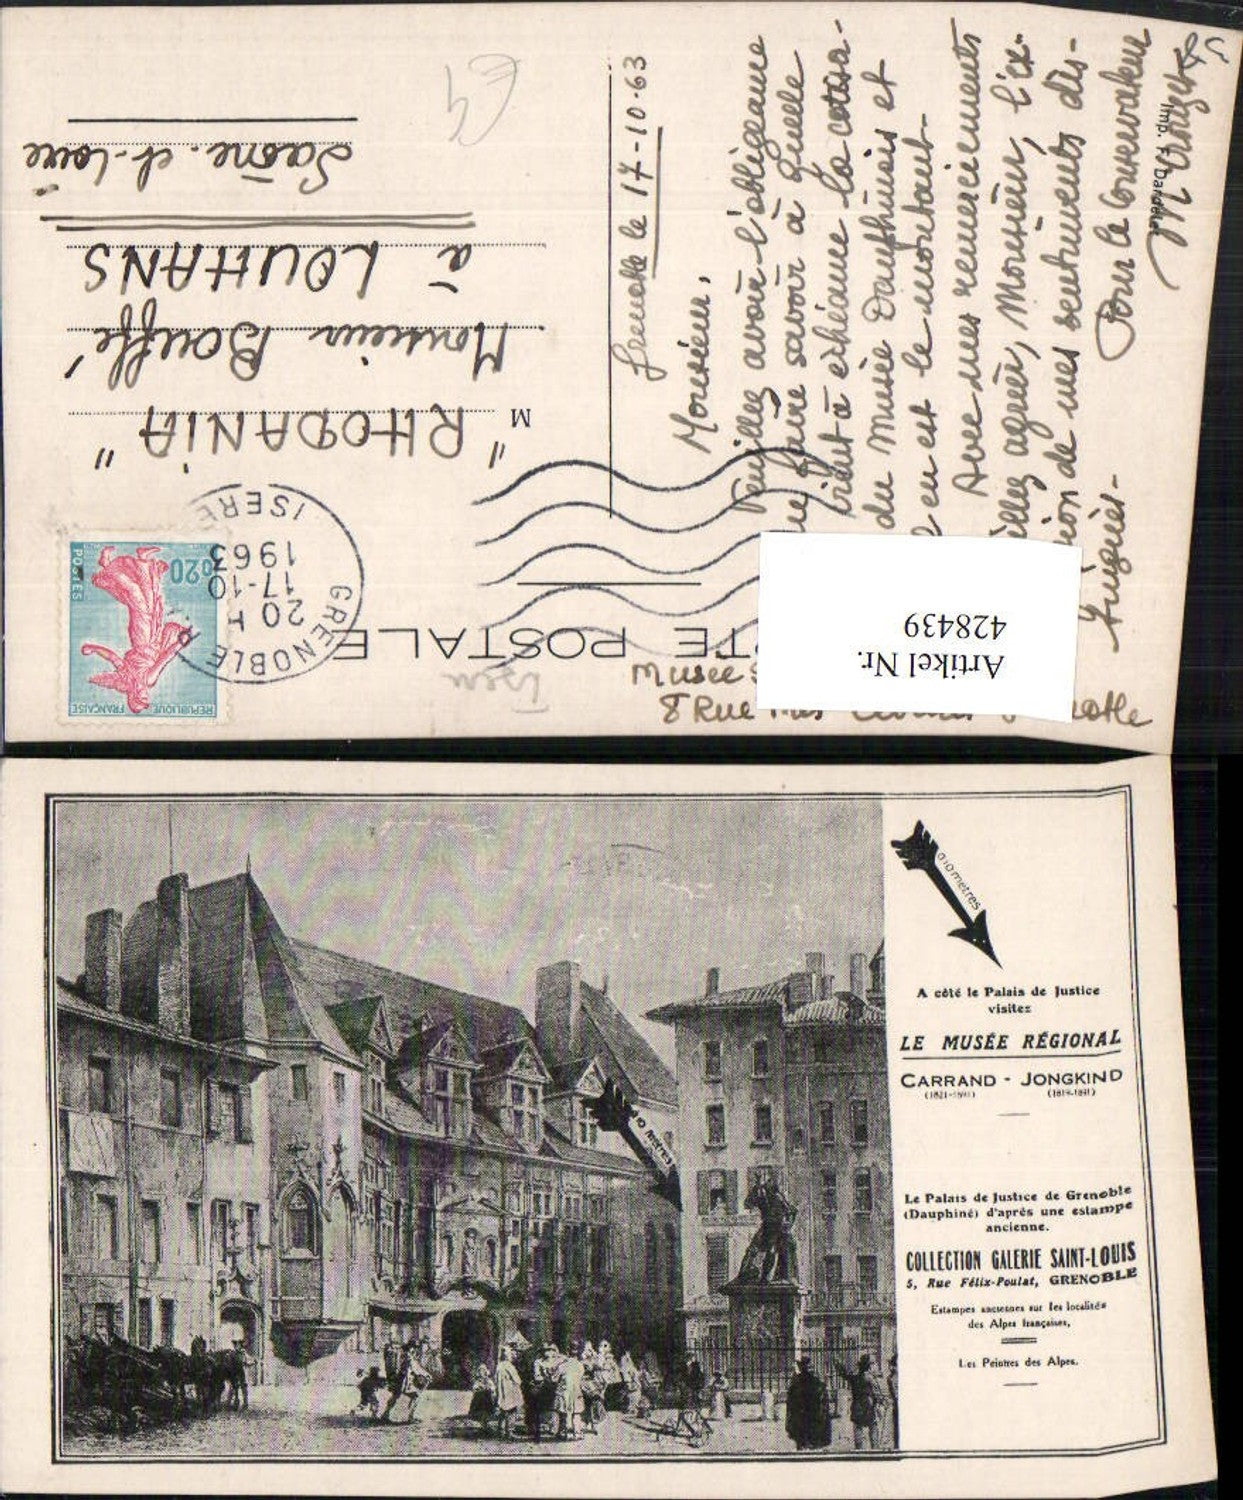 CARTE POSTALE
Musée
8 Rue
Artikel Nr.
428439
GRENOBLE
20 H
17-10
1963
ISERE
REPUBLIQUE FRANÇAISE
0,20
POSTES
M "RHODANIA"
Monsieur Bouffé
à LOUHANS
Saône-et-Loire
Grenoble le 17-10-63
Monsieur,
Veuillez avoir l'obligeance
faire savoir à quelle
échéance la
du Musée Dauphinois et
en est le montant-
Avec mes remerciements
agréer, Monsieur, l'ex-
de mes sentiments dis-
tingués-
Pour le Conservateur
Imp. F. Dardelet
0 10 metres
10 metres
A côté le Palais de Justice
visitez
LE MUSÉE RÉGIONAL
CARRAND - JONGKIND
(1821-1899) (1819-1891)
Le Palais de Justice de Grenoble
(Dauphiné) d'après une estampe
ancienne.
COLLECTION GALERIE SAINT-LOUIS
5, Rue Félix-Poulat, GRENOBLE
Estampes anciennes sur les localités
des Alpes françaises,
Les Peintres des Alpes.